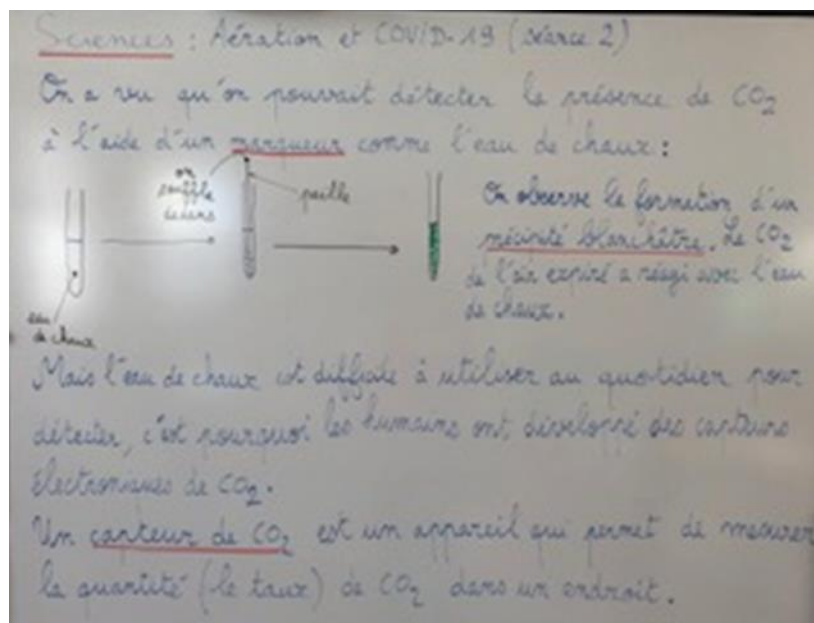 Sciences : Aération et COVID-19 (séance 2)
On a vu qu'on pouvait détecter la présence de CO2
à l'aide d'un marqueur comme l'eau de chaux :
on
souffle
dedans
paille
eau
de chaux
On observe la formation d'un
précipité blanchâtre. Le CO2
de l'air expiré a réagi avec l'eau
de chaux.
Mais l'eau de chaux est difficile à utiliser au quotidien pour
détecter, c'est pourquoi les humains ont développé des capteurs
électroniques de CO2.
Un capteur de CO2 est un appareil qui permet de mesurer
la quantité (le taux) de CO2 dans un endroit.